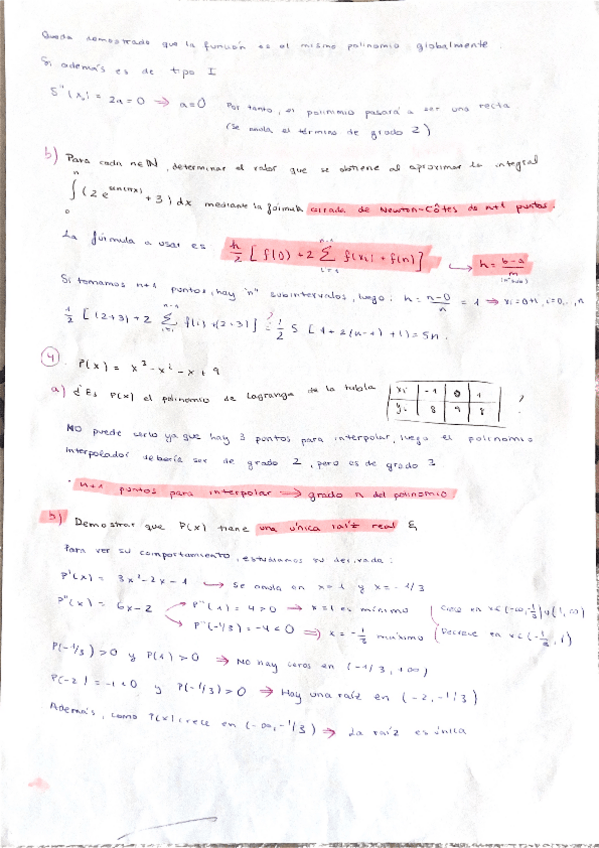 Queda demostrado que la función es el mismo polinomio globalmente.
Si además es de tipo I
S''(x₀) = 2a = 0 ⇒ a = 0 Por tanto, el polinomio pasará a ser una recta
(se anula el término de grado 2)
b) Para cada n∈ℕ, determinar el valor que se obtiene al aproximar la integral
∫₀ⁿ (2 e^(sen(πx)) + 3) dx mediante la fórmula cerrada de Newton-Côtes de n+1 puntos.
La fórmula a usar es h/2 [f(0) + 2 Σ f(xi) + f(n)] → h = (b-a)/m
Si tomamos n+1 puntos, hay "n" subintervalos, luego: h = (n-0)/n = 1 ⇒ xi = 0+i, i=0,..,n
1/2 [(2+3) + 2 Σ f(i) + (2+3)] = 1/2 5 [1 + 2(n-1) + 1] = 5n.
4 P(x) = x³ - x² - x + 9
a) ¿Es P(x) el polinomio de Lagrange de la tabla xi -1 0 1 ?
yi 8 9 8
NO puede serlo ya que hay 3 puntos para interpolar, luego el polinomio
interpolador debería ser de grado 2, pero es de grado 3
· n+1 puntos para interpolar → grado n del polinomio.
b) Demostrar que P(x) tiene una única raíz real
Para ver su comportamiento, estudiamos su derivada:
P'(x) = 3x² - 2x - 1 → Se anula en x=1 y x=-1/3
P''(x) = 6x-2 P''(1) = 4 > 0 → x=1 es mínimo Crece en x∈(-∞,-1/3)∪(1,∞)
P''(-1/3) = -4 < 0 ⇒ x = -1/3 máximo Decrece en x∈(-1/3, 1)
P(-1/3) > 0 y P(1) > 0 ⇒ No hay ceros en (-1/3, +∞)
P(-2) = -1 < 0 y P(-1/3) > 0 ⇒ Hay una raíz en (-2, -1/3)
Además, como P(x) crece en (-∞, -1/3) ⇒ La raíz es única